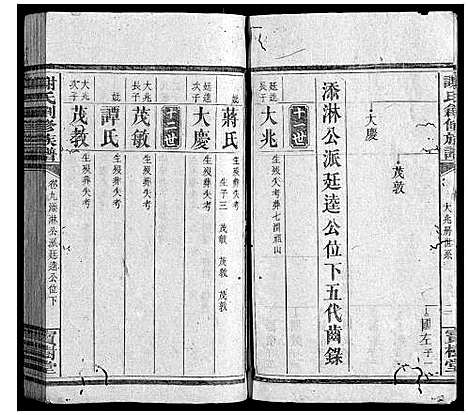 謝氏創修族譜
大兆房世系
寶樹堂
大慶
茂敦
國左子一
添淋公派廷逵公位下五代齒錄
十一世
廷逵長子
大兆
生歿失考葬七澗祖山
妣
蔣氏
生歿葬失考
生子三 茂敏 茂敦 茂教
廷逵次子
大慶
生歿葬失考
十二世
大兆長子
茂敏
生歿葬失考
妣
譚氏
生歿葬失考
大兆次子
茂教
生歿葬失考
謝氏創修族譜
卷九添淋公派廷逵公位下
寶樹堂